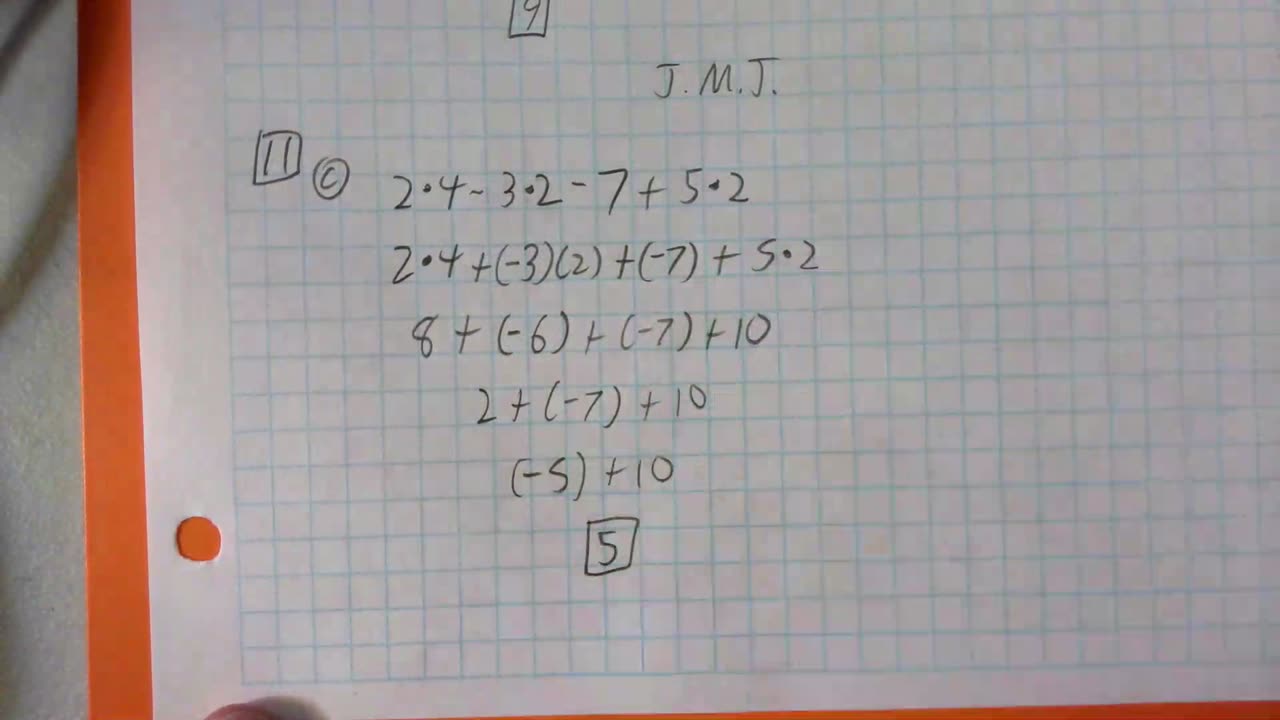 9
J.M.J.
11 c 2·4-3·2-7+5·2
2·4+(-3)(2)+(-7)+5·2
8+(-6)+(-7)+10
2+(-7)+10
(-5)+10
5